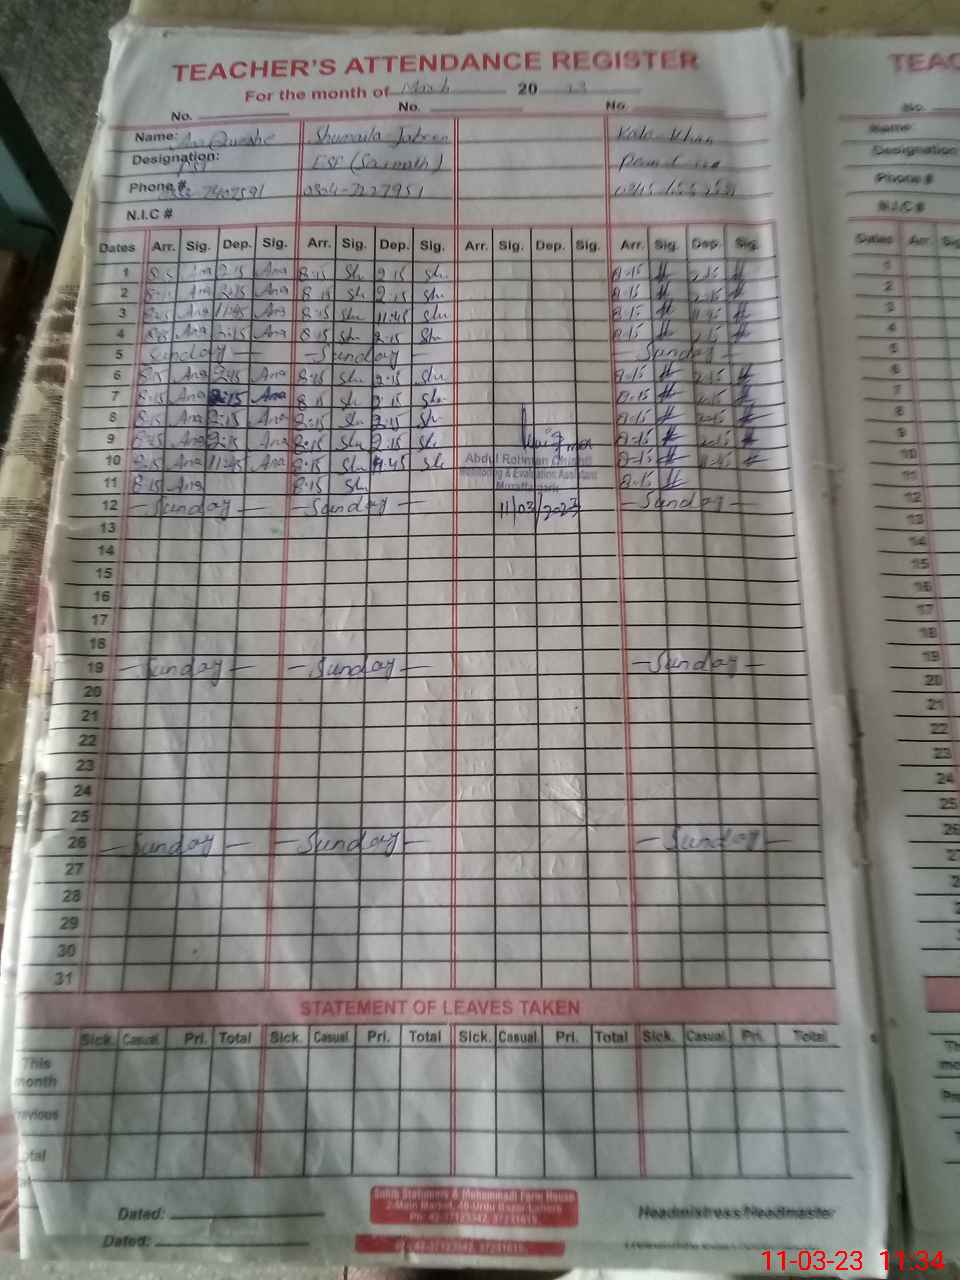 TEACHER'S ATTENDANCE REGISTER
For the month of March 20 23
No. No. No.
Name: Shumaila Jabeen Kala Khan
Designation: PST ESE (Sci math)
Phone # 0304-7227951
N.I.C #
Dates Arr. Sig. Dep. Sig. Arr. Sig. Dep. Sig. Arr. Sig. Dep. Sig. Arr. Sig. Dep. Sig.
1 8:15 Ana 2:15 Ana 8:15 Sh 2:15 Sh 8:15 2:15
2 8:15 Ana 2:15 Ana 8:15 Sh 2:15 Sh 8:15 2:15
3 8:15 Ana 11:45 Ana 8:15 Sh 11:45 Sh 8:15 11:45
4 8:15 Ana 2:15 Ana 8:15 Sh 2:15 Sh 8:15 2:15
5 Sunday — — Sunday — — Sunday —
6 8:15 Ana 2:15 Ana 8:15 Sh 2:15 Sh 8:15 2:15
7 8:15 Ana 2:15 Ana 8:15 Sh 2:15 Sh 8:15 2:15
8 8:15 Ana 2:15 Ana 8:15 Sh 2:15 Sh 8:15 2:15
9 8:15 Ana 2:15 Ana 8:15 Sh 2:15 Sh 8:15 2:15
10 8:15 Ana 11:45 Ana 8:15 Sh 11:45 Sh 8:15 11:45
Abdul Rehman
Monitoring & Evaluation Assistant
11 8:15 Ana 8:15 Sh 8:15
12 — Sunday — — Sunday — 11/03/2023 — Sunday —
13
14
15
16
17
18
19 — Sunday — — Sunday — — Sunday —
20
21
22
23
24
25
26 — Sunday — — Sunday — — Sunday —
27
28
29
30
31
STATEMENT OF LEAVES TAKEN
Sick. Casual. Pri. Total Sick. Casual. Pri. Total Sick. Casual. Pri. Total Sick. Casual. Pri. Total
This month
Previous
Total
Sohib Stationers & Mohammadi Form House
2-Main Market, 40-Urdu Bazar Lahore
Ph: 42-37123342, 37241615
Dated: Headmistress/Headmaster
Dated:
TEAC
No.
Name:
Designation
Phone #
N.I.C #
Dates Arr. Sig
1
2
3
4
5
6
7
8
9
10
11
12
13
14
15
16
17
18
19
20
21
22
23
24
25
26
11-03-23 11:34